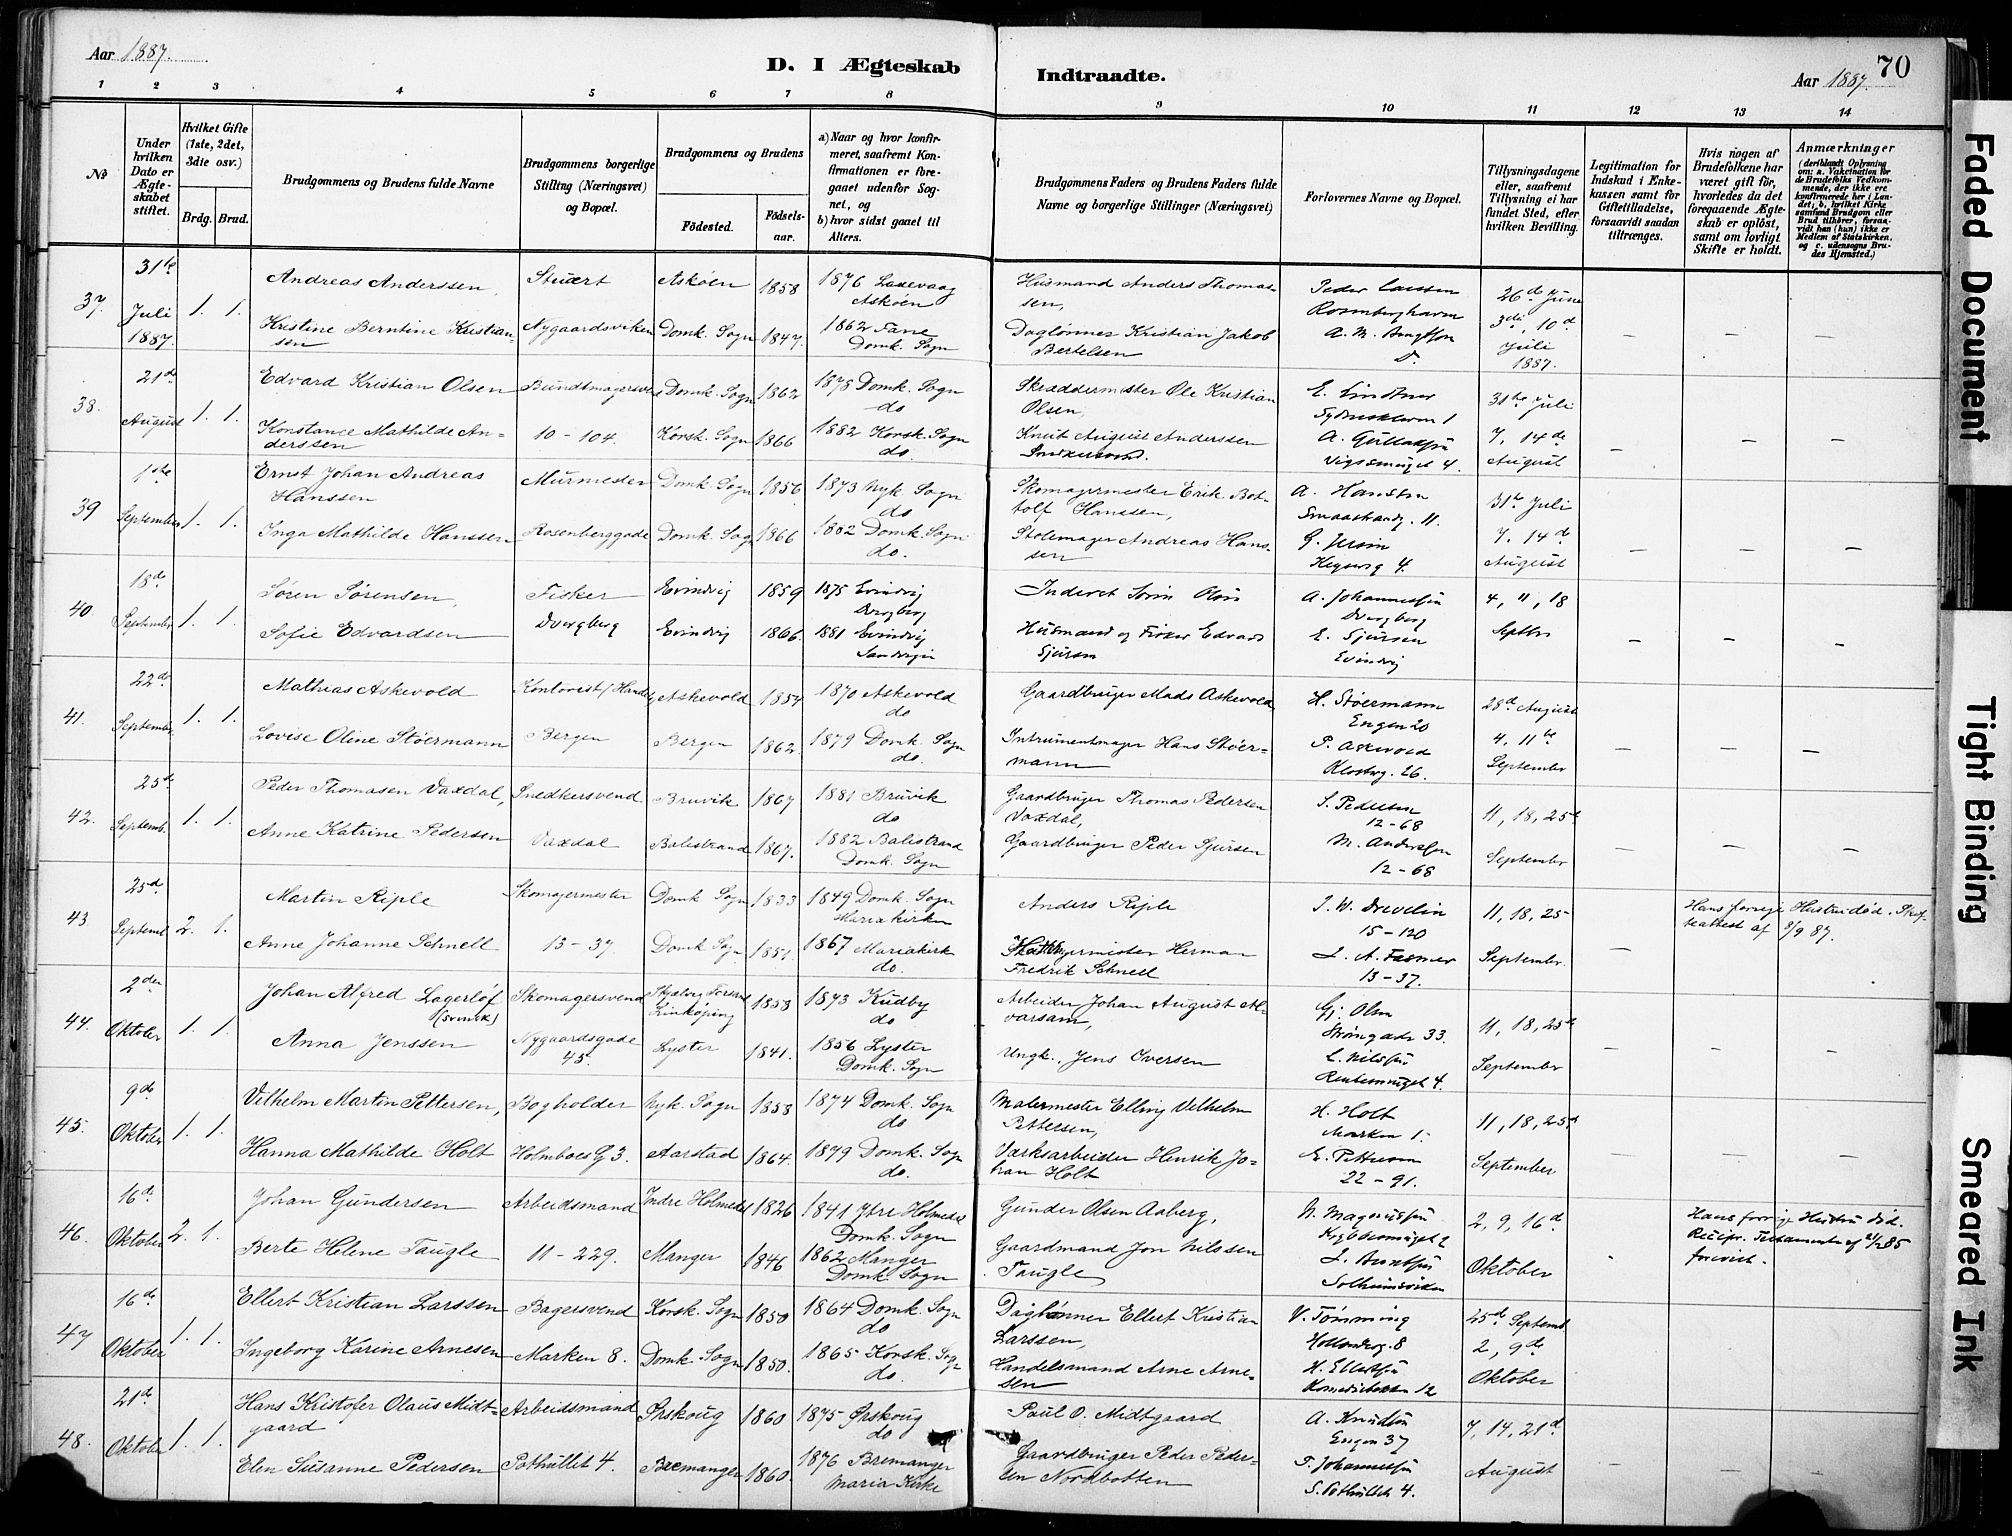 Aar 1887.
D. I Ægteskab
Indtraadte.
Aar 1887.
70
1 2 3 4 5 6 7 8 9 10 11 12 13 14
No
Under hvilken Dato er Ægteskabet stiftet.
Hvilket Gifte (1ste, 2det, 3die osv.)
Brdg. Brud.
Brudgommens og Brudens fulde Navne
Brudgommens borgerlige Stilling (Næringsvei) og Bopæl.
Brudgommens og Brudens
Fødested.
Fødselsaar.
a) Naar og hvor konfirmeret, saafremt Konfirmationen er foregaaet udenfor Sognet, og
b) hvor sidst gaaet til Alters.
Brudgommens Faders og Brudens Faders fulde Navne og borgerlige Stillinger (Næringsvei)
Forlovernes Navne og Bopæl.
Tillysningsdagene eller, saafremt Tillysning ei har fundet Sted, efter hvilken Bevilling.
Legitimation for Indskud i Enkekassen samt for Giftetilladelse, forsaavidt saadan tiltrænges.
Hvis nogen af Brudefolkene har været gift før, hvorledes da det foregaaende Ægteskab er opløst, samt om lovligt Skifte er holdt.
Anmærkninger
(deriblandt Oplysning om: a. Vakcination for de Brudefolks Vedkommende, der ikke ere konfirmerede her i Landet, b. hvilket Kirkesamfund Brudgom eller Brud tilhører, forsaavidt han (hun) ikke er Medlem af Statskirken, og c. udensogns Brudes Hjemsted.)
37. 31te Juli 1887. 1. 1.
Andreas Anderssen, Stuert Askøen 1858 1876 Laxevaag Askøen
Husmand Anders Thomassen,
Kristine Berntine Kristiansen Nygaardsviken Domk. Sogn 1847. 1862 Fane Domk. Sogn
Daglønner Kristian Jakob Bertelsen
26de Juni 3die, 10de Juli 1887.
38. 21de August 1. 1.
Edvard Kristian Olsen Domk. Sogn 1862 1878 Domk. Sogn do
Skræddermester Ole Kristian Olsen,
Konstance Mathilde Anderssen 10-104. Korsk. Sogn 1866 1882 Korsk. Sogn do.
Knut August Anderssen
31te Juli 7, 14de August
39 1ste September 1. 1.
Ernst Johan Andreas Hanssen Murmester Domk. Sogn 1856 1873 Nyk. Sogn do
Skomagermester Erik Bottolf Hanssen,
A. Hanssen
Inga Mathilde Hanssen Rosenberggade Domk. Sogn 1866 1882 Domk. Sogn do.
Stolemager Andreas Hanssen
31te Juli 7, 14de August
40 18de September 1. 1.
Søren Sørensen, Fisker Evindvig 1859 1875 Evindvig Dvergberg
A. Johannessen Dvergberg
Sofie Edvardsen Dvergberg Evindvig 1866. 1881 Evindvig
Husmand og Fisker Edvard Sjursen
E. Sjursen Evindvig
4, 11, 18 Septbr
41. 22de September. 1. 1.
Mathias Askevold Kontorist (Handel) Askevold 1854 1870 Askevold do
Gaardbruger Mads Askevold
H. Støermann Engen 20
Lovise Oline Støermann Bergen Bergen 1862 1879 Domk. Sogn do.
Intrumentmager Hans Støermann
P. Askevold Klosterg. 26.
28de August 4, 11te September
42. 25de Septemb. 1. 1.
Peder Thomasen Vaxdal, Snedkersvend Bruvik 1867 1881 Bruvik do
Gaardbruger Thomas Pedersen Vaxdal,
S. Pedersen 12-68
Anne Katrine Pedersen Vaxdal Balestrand 1867. 1882 Balestrand Domk. Sogn
Gaardbruger Peder Sjursen
M. Anderssen 12-68
11, 18, 25de September
43. 25d Septemb 2. 1.
Martin Riple Skomagermester Domk. Sogn 1833 1849 Domk. Sogn Mariakirken
Anders Riple
J. W. Drevelin 15-120
Anne Johanne Schnell 13-37 Domk. Sogn 1851 1867 Mariakirk do.
Herman Fredrik Schnell
J. A. Fasmer 13-37.
11, 18, 25 September.
Hans forrige Hustru død. Skifteattest af 8/9 87.
44. 2den Oktober 1. 1.
Johan Alfred Lagerlöf (svensk) Skomagersvend Linköping 1858 1873 Kudby do
Arbeider Johan August Alvarsam,
Gj. Olsen Strømgade 33.
Anna Jenssen Nygaardsgade 45. Lyster 1841. 1856 Lyster Domk. Sogn
Ungk. Jens Iversen
11, 18, 25de September
45. 9de Oktober 1. 1.
Vilhelm Martin Pettersen, Bogholder Nyk. Sogn 1858 1874 Domk. Sogn do
Malermester Elling Vilhelm Pettersen,
H. Holt Marken 1.
Hanna Mathilde Holt Holmboes G 3. Aarstad 1864. 1879 Domk. Sogn do.
Værksarbeider Henrik Johan Holt
E. Pettersen 22-91.
11, 18, 25d September
46. 16de Oktober 2. 1.
Johan Gundersen Arbeidsmand Indre Holmedal 1826 1841 Ytre Holmedal Domk. Sogn
Gunder Olsen Aaberg,
N. Magnussen
Berte Helene Taugle 11-229. Manger 1846 1862 Manger Domk. Sogn
Gaardmand Jon Nilssen Taugle
J. Berntsen Solheimsviken
2, 9, 16de Oktober
Hans forrige Hustru død. Recipr. Testamente af 2/2 85 forevist.
47 16de Oktober 1. 1.
Ellert Kristian Larssen Bagersvend Korsk. Sogn 1850 1864 Domk. Sogn do
Daglønner Ellert Kristian Larssen,
V. Tømming
Ingeborg Karine Arnesen Marken 8. Domk. Sogn 1850. 1865 Korsk. Sogn do.
Handelsmand Arne Arnesen
H. Ellertsen
25de Septemb. 2, 9de Oktober
48. 21de Oktober 1. 1.
Hans Kristofer Olaus Midtgaard Arbeidsmand Ørskoug 1860 1875 Ørskoug do
Paul O. Midtgaard
A. Knudsen Engen 37
Elen Susanne Pedersen Pothullet 4. Bremanger 1860. 1876 Bremanger Maria Kirke
Gaardbruger Peder Pedersen Nordbotten
T. Johannessen S. Pothullet 4.
7, 14, 21de August
Faded Document
Tight Binding
Smeared Ink